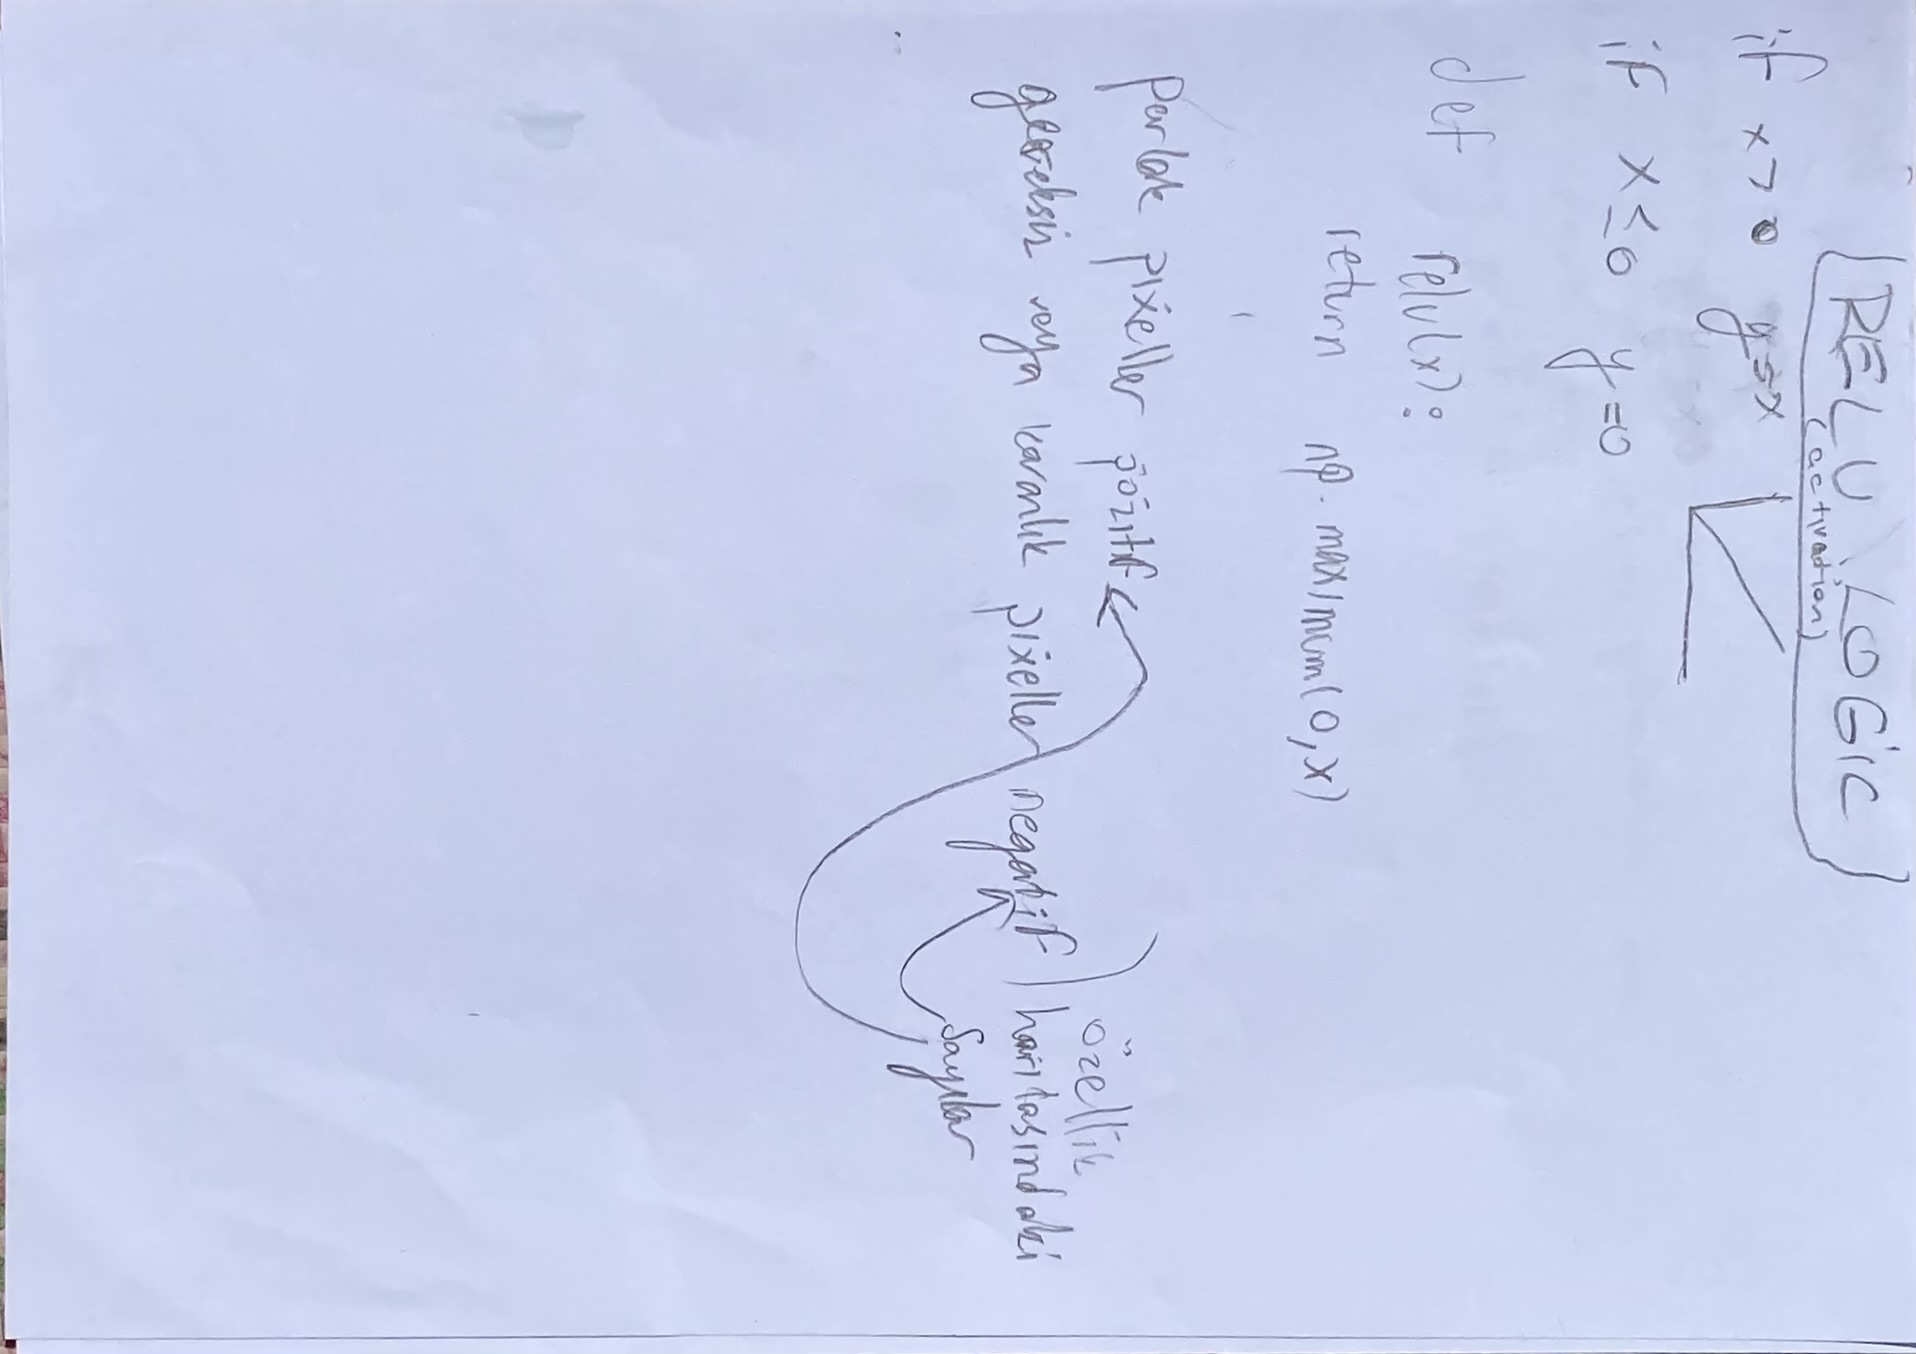 RELU LOGIC
(activation)
if x > 0 y = x
if x ≤ 0 y = 0
def relu(x):
return np.maximum(0,x)
parlak pixeller pozitif
gereksiz veya karanlık pixeller negatif
özellik
haritasındaki
sayılar